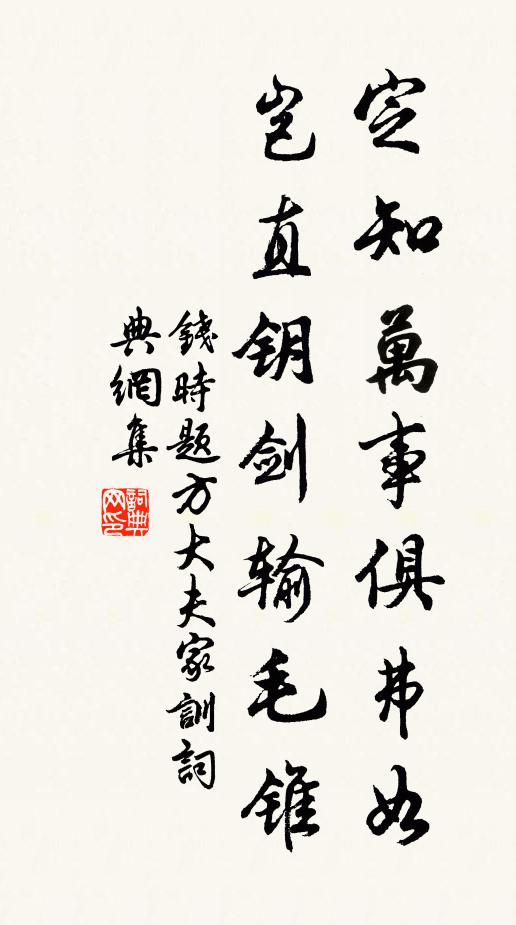 定知萬事俱弗如
岂直钥剑输毛锥
錢時題方大夫家訓詞
典網集
詞典网印